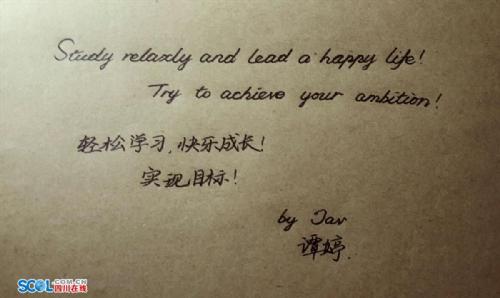 Study relaxly and lead a happy life!
Try to achieve your ambition!
轻松学习,快乐成长!
实现目标!
by Tav
谭婷.
SCOL.COM.CN
四川在线